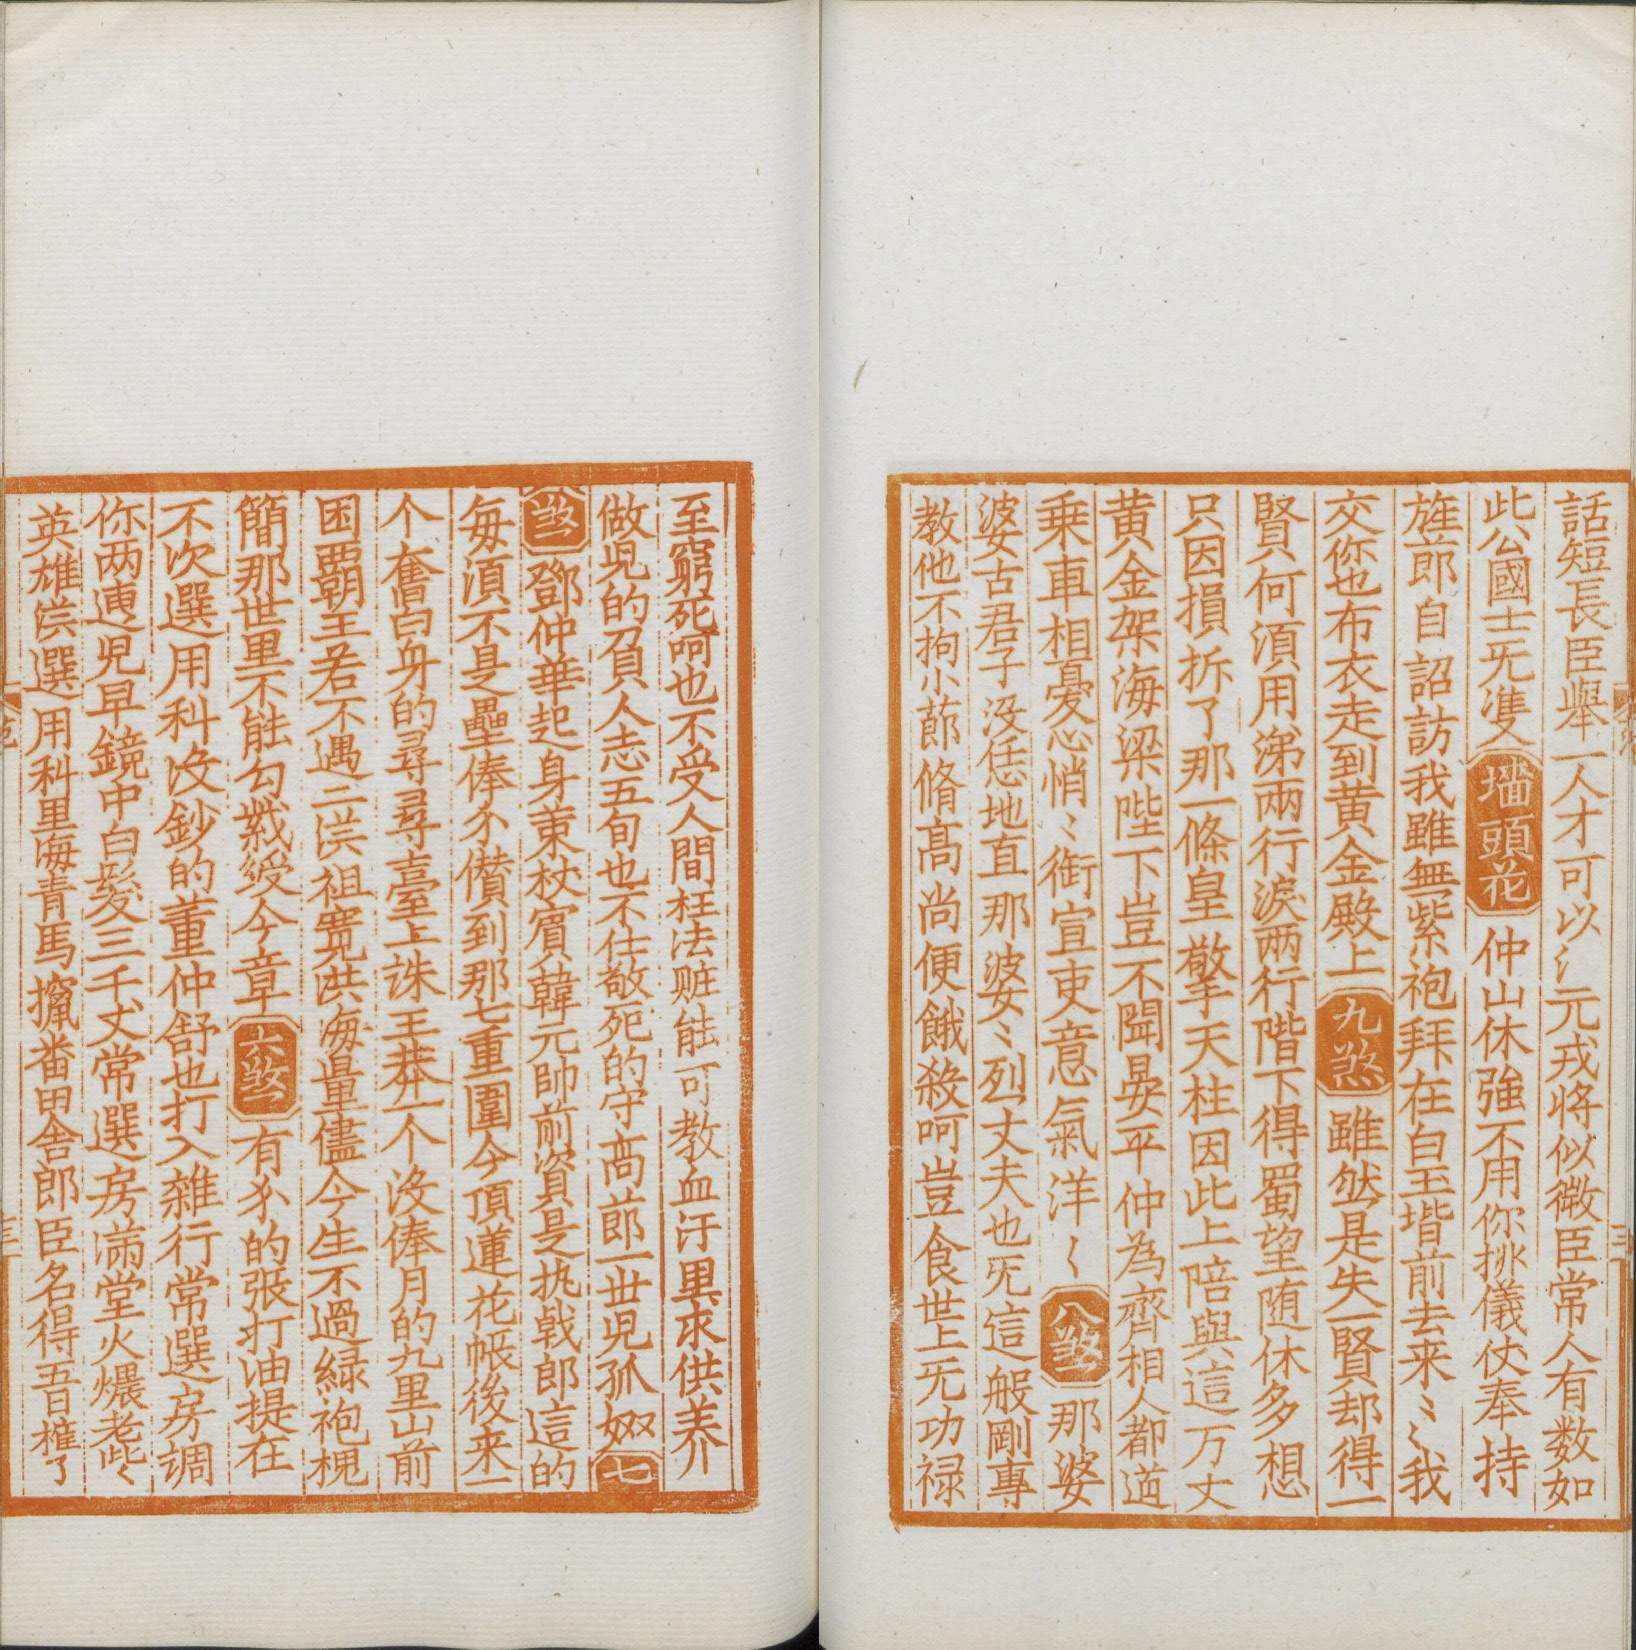 話短長臣舉一人才可以氵元戎將似微臣常人有数如
此公國士旡㕠墻頭花仲山休強不用你挑儀伏奉持
旌莭自詔訪我雖無紫袍拜在白玉堦前去来〻〻我
交您也布衣走到黄金殿上九煞雖然是失一賢却得一
賢何湏用涕兩行淚两行階下得蜀望随休多想
只因損折了那一條皇擎天柱因此上陪與這万丈
黄金架海梁陛下豈不聞晏平仲為齊相人都道
乗車相憂心悄〻衔宣吏意氣洋〻八煞那婆
婆古君子没恁地直那婆〻烈丈夫也旡這般剛專
教他不拘小莭脩髙尚便餓殺呵豈食世上旡功禄
至窮死呵也不受人間枉法賍能可教血汙里求供养
做児的召負人志五旬也不仕敬死的守髙莭一世児孤奴七
煞鄧仲華起身䇿杖賔韓元帥前資是执戟郎這的
每湏不是壘俸尒儧到那七重圍今頂蓮花帳後来一
个奮白身的尋尋臺上誅王莽一个没俸月的九里山前
困覇王若不遇二漢祖寛洪海量儘今生不過緑袍槐
簡那世里不能勾紫綬今章六煞有尒的張打油提在
不次選用科没鈔的董仲舒也打入雜行常選房調
你两逎児早鏡中白髪三千丈常選房滿堂火㸐老些〻
英雄漢選用科里海青馬攛畨田舍郎臣名得吾日榷了